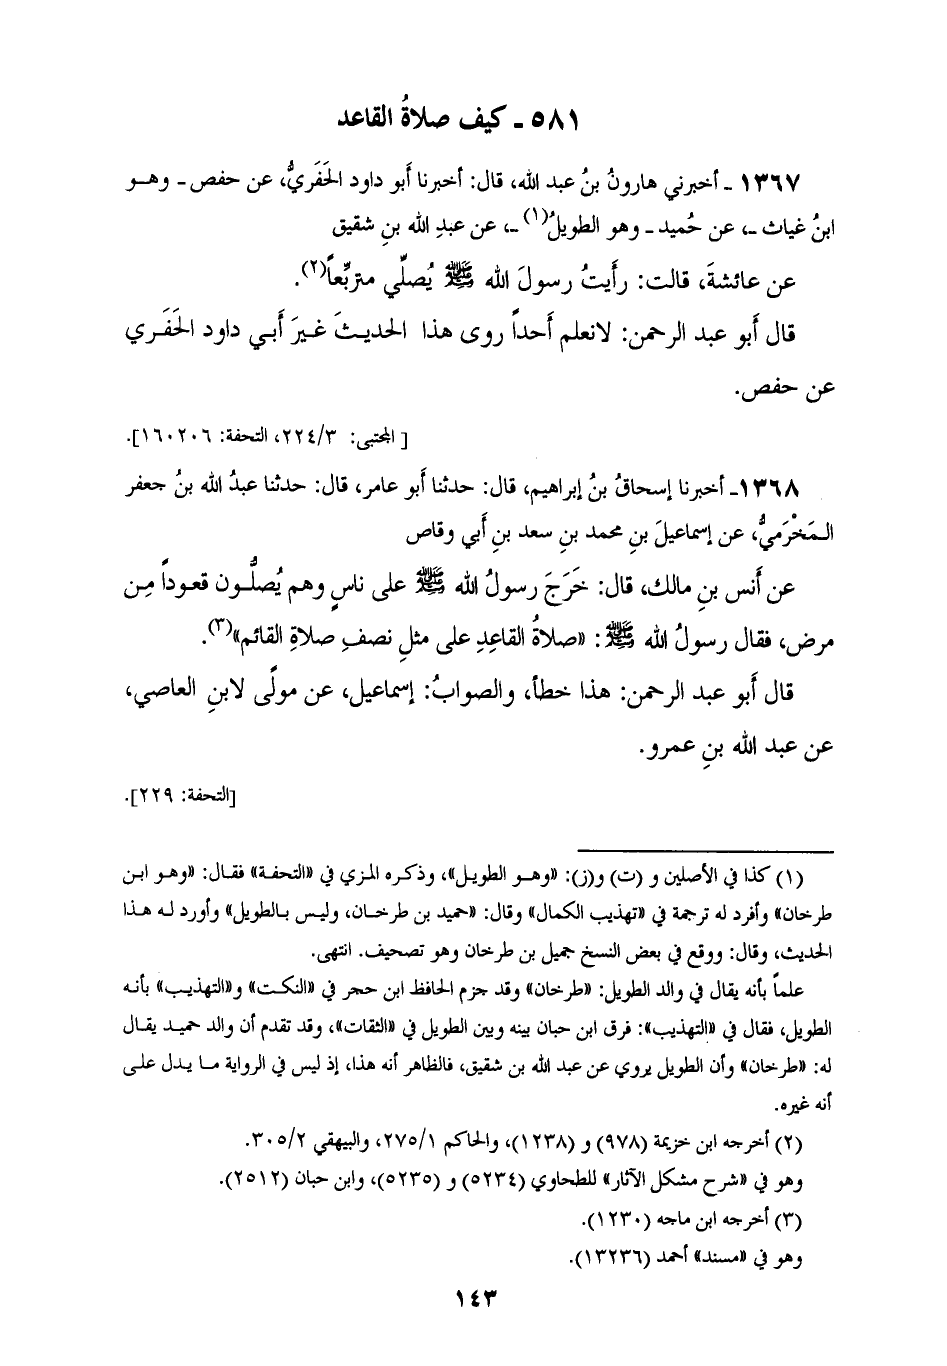 ٥٨١ ـ كيف صلاةُ القاعد
١٣٦٧ ـ أخبرني هارونُ بنُ عبد الله، قال: أخبرنا أَبو داود الحَفَريُّ، عن حفص ـ وهو
ابنُ غياث ـ، عن حُميد ـ وهو الطويلُ(١) ـ، عن عبدِ الله بنِ شقيق
عن عائشةَ، قالت: رأَيتُ رسولَ الله ﷺ يُصلِّي متربِّعاً(٢).
قال أَبو عبد الرحمن: لانعلم أَحداً روى هذا الحديثَ غيرَ أَبي داود الحَفَري
عن حفص.
[ المجتبى: ٢٢٤/٣، التحفة: ١٦٠٢٠٦].
١٣٦٨ـ أخبرنا إسحاقُ بنُ إبراهيم، قال: حدثنا أَبو عامر، قال: حدثنا عبدُ الله بنُ جعفر
المَخْرَميُّ، عن إسماعيلَ بنِ محمد بنِ سعد بنِ أَبي وقاص
عن أَنس بنِ مالك، قال: خَرَجَ رسولُ الله ﷺ على ناسٍ وهم يُصلُّون قعوداً مِن
مرض، فقال رسولُ الله ﷺ: «صلاةُ القاعِدِ على مثلِ نصفِ صلاةِ القائم»(٣).
قال أَبو عبد الرحمن: هذا خطأ، والصوابُ: إسماعيل، عن مولًى لابنِ العاصي،
عن عبد الله بنِ عمرو.
[التحفة: ٢٢٩].
(١) كذا في الأصلين و (ت) و(ز): «وهو الطويل»، وذكره المزي في «التحفة» فقال: «وهو ابن
طرخان» وأفرد له ترجمة في «تهذيب الكمال» وقال: «حميد بن طرخان، وليس بالطويل» وأورد له هذا
الحديث، وقال: ووقع في بعض النسخ جميل بن طرخان وهو تصحيف. انتهى.
علماً بأنه يقال في والد الطويل: «طرخان» وقد جزم الحافظ ابن حجر في «النكت» و«التهذيب» بأنه
الطويل، فقال في «التهذيب»: فرق ابن حبان بينه وبين الطويل في «الثقات»، وقد تقدم أن والد حميد يقال
له: «طرخان» وأن الطويل يروي عن عبد الله بن شقيق، فالظاهر أنه هذا، إذ ليس في الرواية ما يدل على
أنه غيره.
(٢) أخرجه ابن خزيمة (٩٧٨) و (١٢٣٨)، والحاكم ٢٧٥/١، والبيهقي ٣٠٥/٢.
وهو في «شرح مشكل الآثار» للطحاوي (٥٢٣٤) و (٥٢٣٥)، وابن حبان (٢٥١٢).
(٣) أخرجه ابن ماجه (١٢٣٠).
وهو في «مسند» أحمد (١٣٢٣٦).
١٤٣